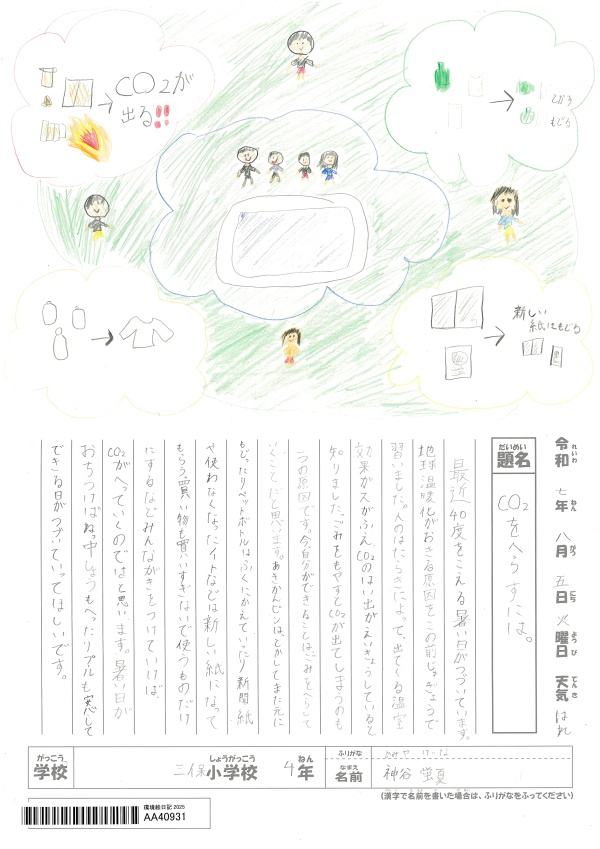 CO2が
出る!!
とかろ
もどる
新しい
紙にもどる
令和 七年 八月 五日 火曜日 天気 はれ
れいわ ねん がつ にち ようび てんき
だいめい
題名
CO2をへらすには。
最近40度をこえる暑い日がつづいています。
地球温暖化がおきる原因をこの前じゅぎょうで
習いました。人のはたらきによって、出てくる温室
効果ガスがふえCO2のはい出がえいきょうしていると
知りました。ごみをもやすとCO2が出てしまうのも
一つの原因です。今自分ができることは、ごみをへらして
いくことだと思います。あきかんビンは、とかしてまた元に
もどったりペットボトルはふくにかえていったり新聞紙
や使わなくなったノートなどは新しい紙になって
もらう。買い物も買いすぎないで使うものだけ
にするなどみんながきをつけていけば、
CO2がへっていくのではと思います。暑い日が
おちつけばねっ中しょうもへったりプールも安心して
できる日がつづいていってほしいです。
がっこう
学校
三保小学校 4年
しょうがっこう ねん
ふりがな
なまえ
名前
神谷 蛍夏
(漢字で名前を書いた場合は、ふりがなをふってください)
環境絵日記2025
AA40931